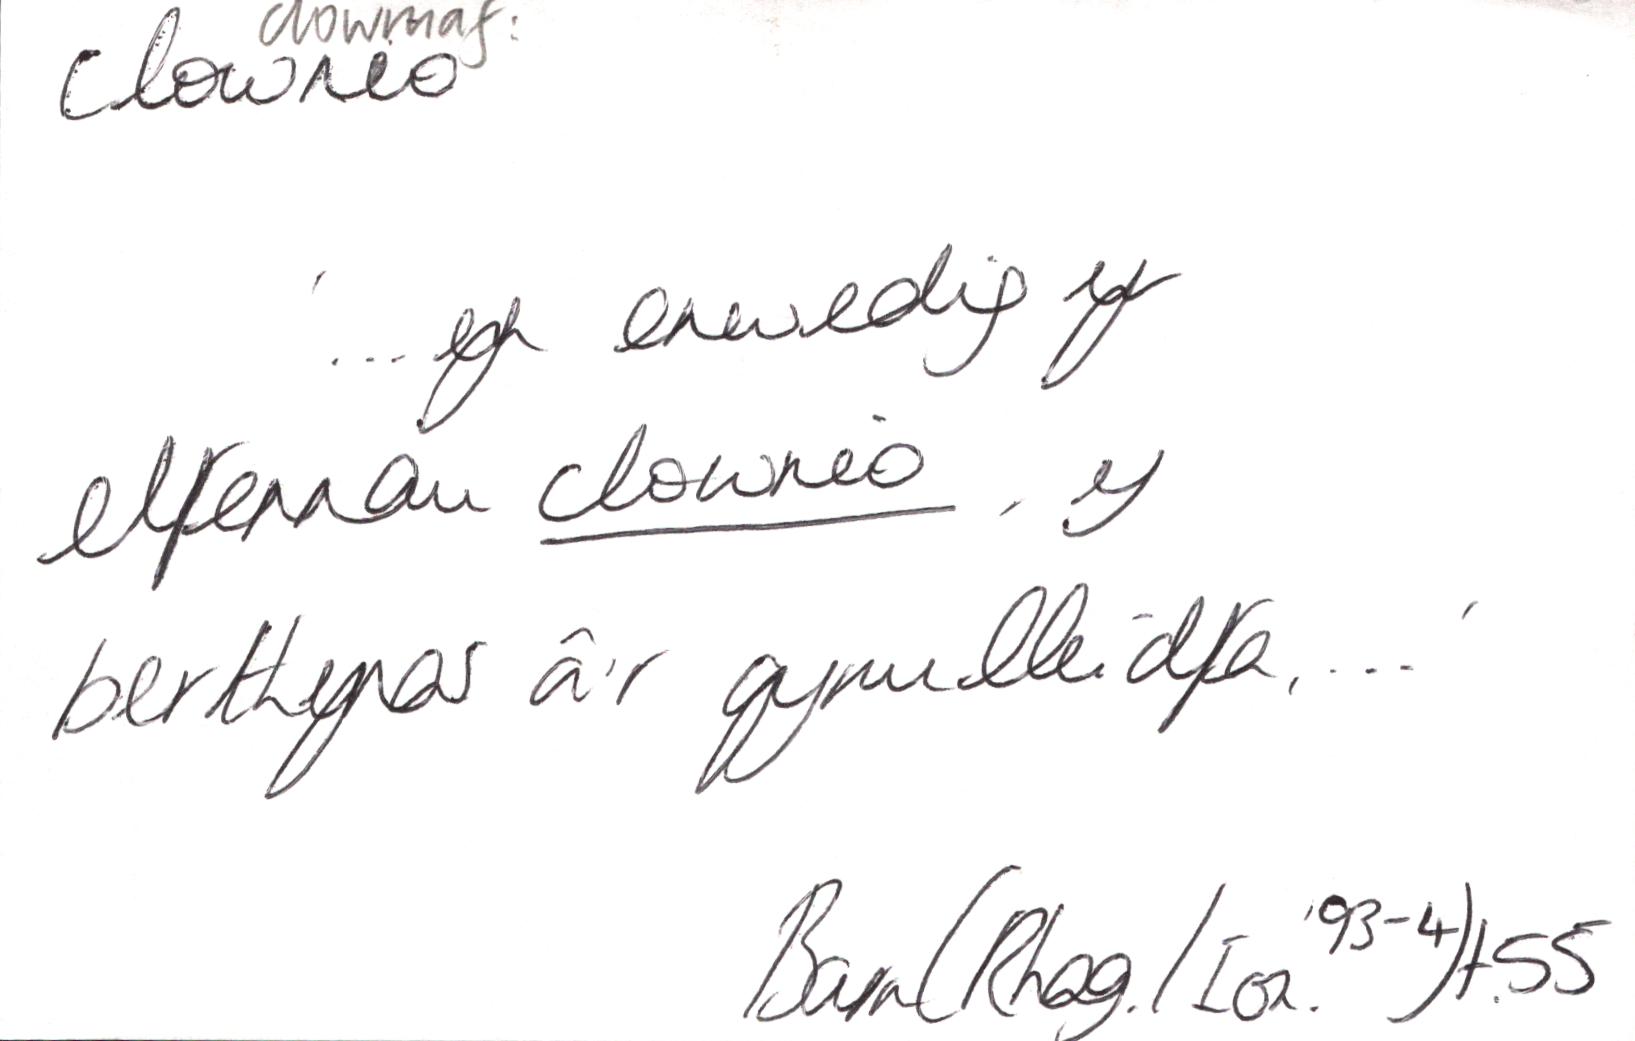 clowniaf:
clownio
'...yn enwedig yr
elfennau clownio, y
berthynas â'r gynulleidfa,...'
Barn (Rhag./Ion. '93-4) t.55